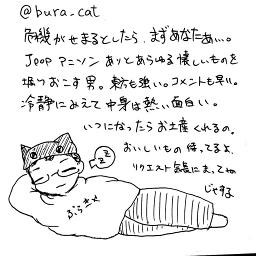 @bura_cat
危機がせまるとしたら、まずあなたぁ…。
Jpop アニソン ありとあらゆる懐しいものを
堀りおこす男。東方も強い。コメントも早い。
冷静にみえて中身は熱い面白い。
いつになったらお土産くれるの。
おいしいもの 待ってるよ。
リクエスト気長にまってね
じゃすね
zzz
ぶらきゃ